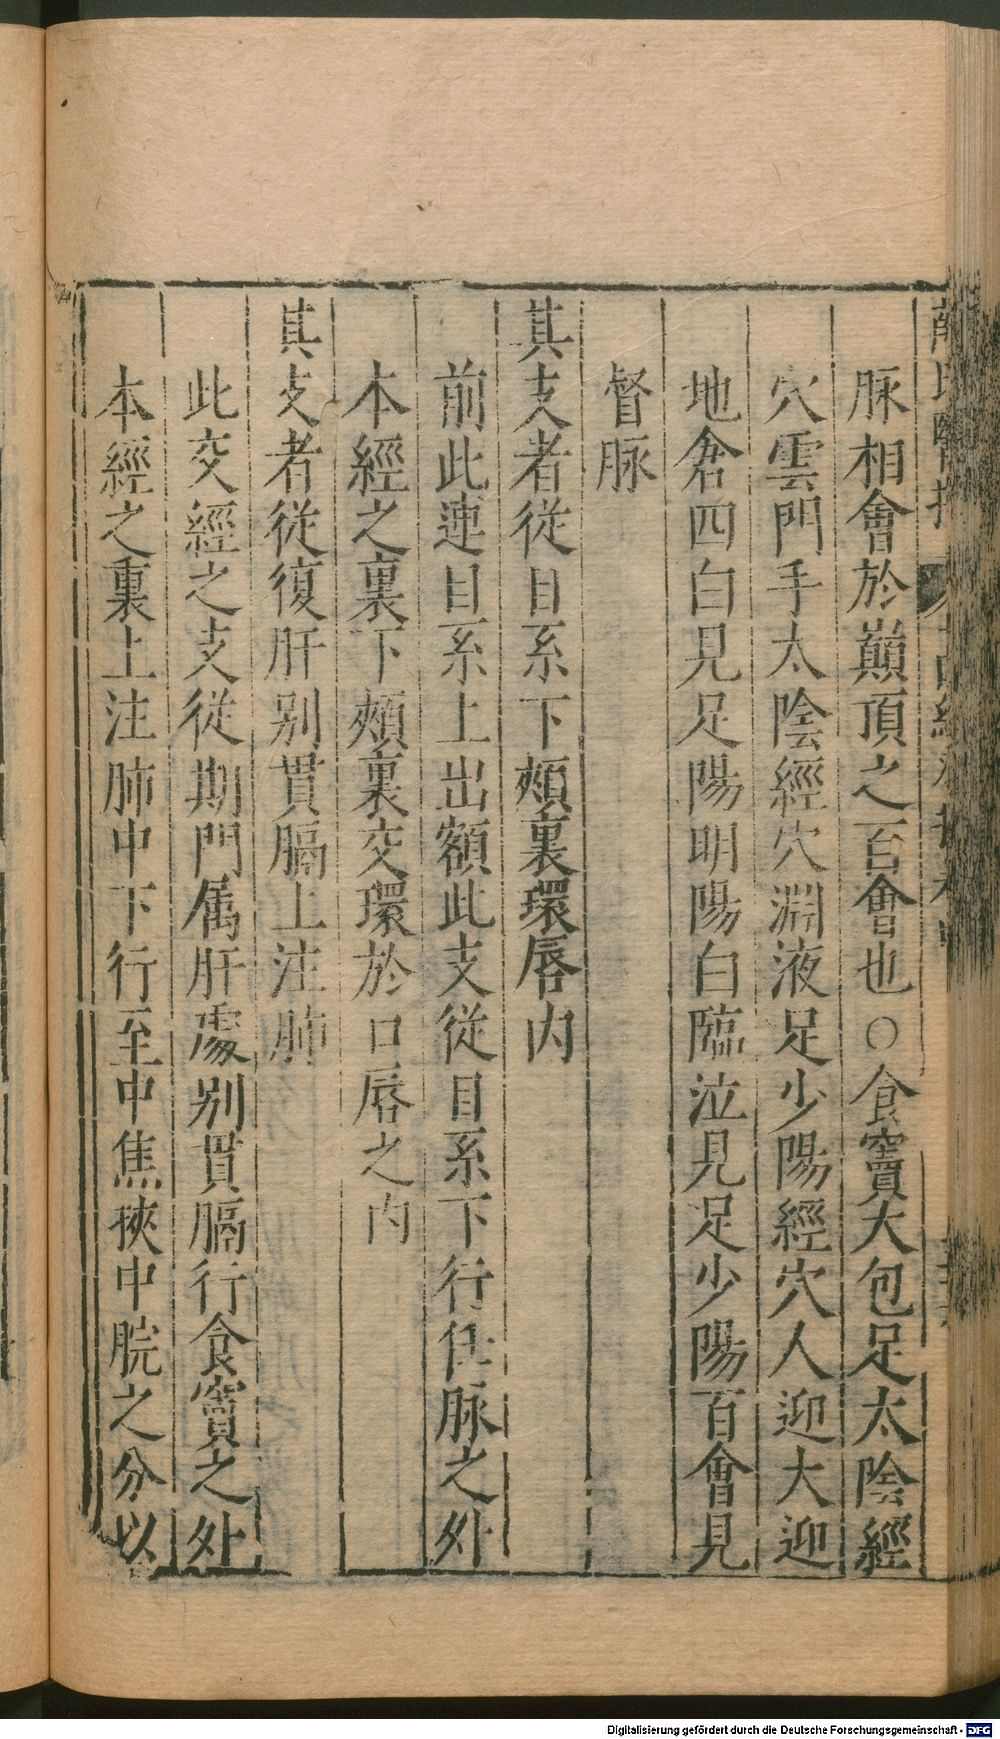 脉相會於巔頂之百會也○食竇大包足太陰經
穴雲門手太陰經穴淵液足少陽經穴人迎大迎
地倉四白見足陽明陽白臨泣見足少陽百會見
督脉
其支者從目系下頰裏環唇内
前此連目系上出額此支從目系下行任脉之外
本經之裏下頰裏交環於口唇之内
其支者從復肝别貫膈上注肺
此交經之支從期門属肝處别貫膈行食竇之外
本經之裏上注肺中下行至中焦挾中脘之分以
Digitalisierung gefördert durch die Deutsche Forschungsgemeinschaft - DFG